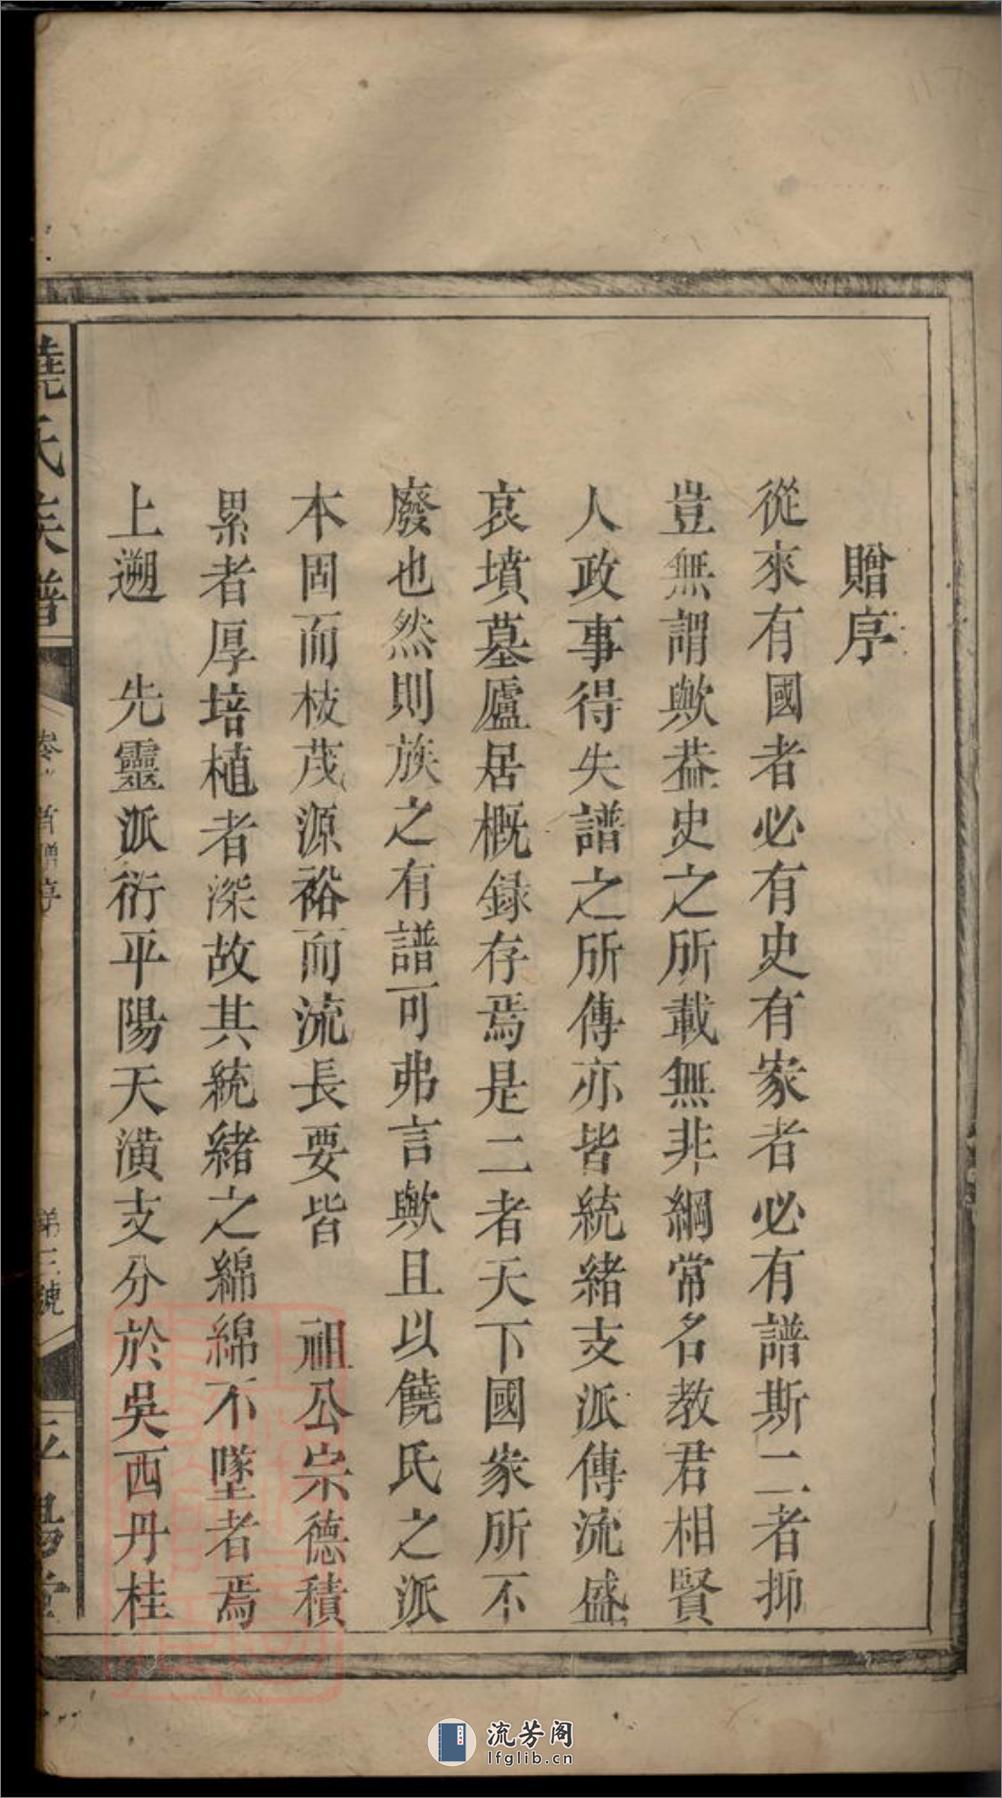 贈序
從來有國者必有史有家者必有譜斯二者抑
豈無謂歟葢史之所載無非綱常名教君相賢
人政事得失譜之所傳亦皆統緒支派傳流盛
哀墳墓廬居概録存焉是二者天下國家所不
廢也然則族之有譜可弗言歟且以饒氏之派
本固而枝茂源裕而流長要皆 祖公宗德積
累者厚培植者深故其統緒之綿綿不墜者焉
上遡 先靈派衍平陽天潢支分於吳西丹桂
饒氏族譜
卷首贈序
平陽堂
流芳阁
lfglib.cn